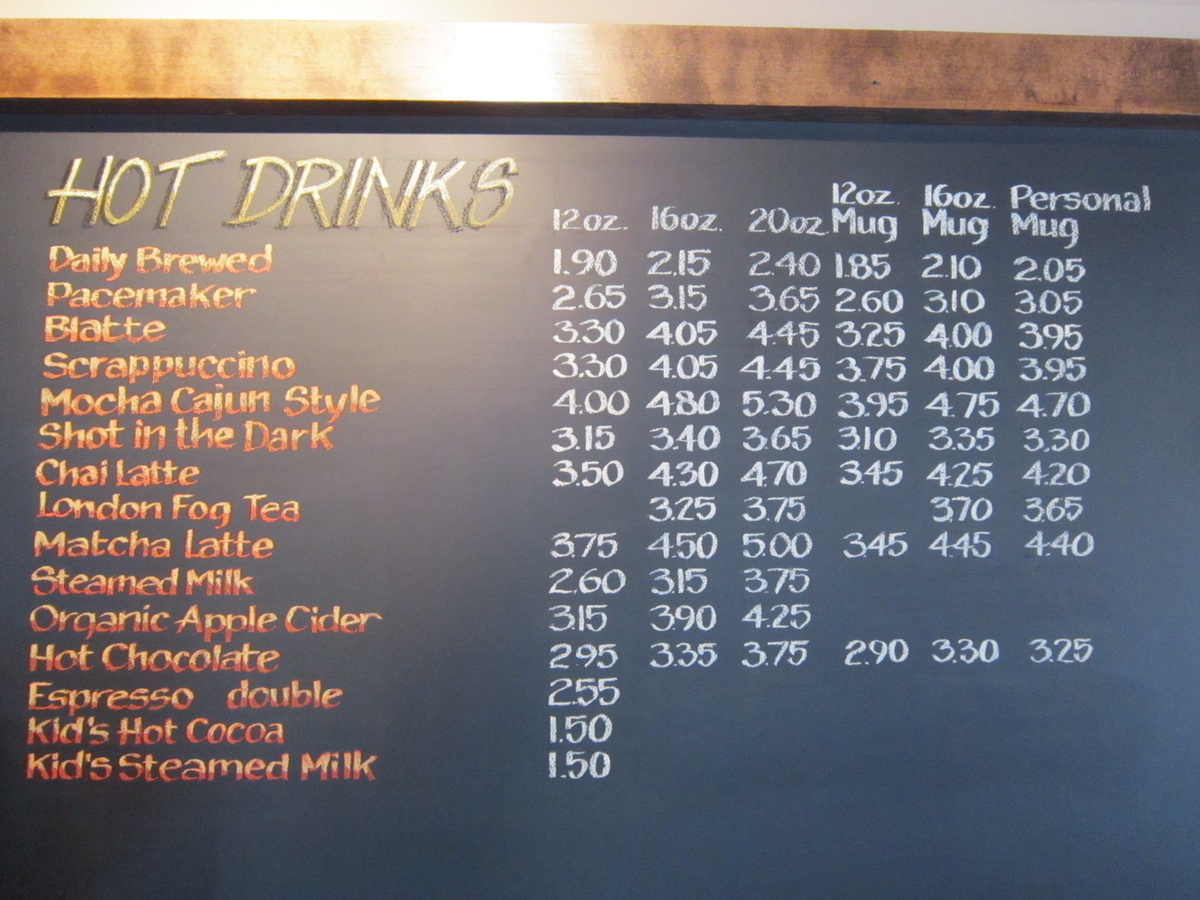 HOT DRINKS
12oz. 16oz. 20oz. 12oz. Mug 16oz. Mug Personal Mug
Daily Brewed 1.90 2.15 2.40 1.85 2.10 2.05
Pacemaker 2.65 3.15 3.65 2.60 3.10 3.05
Blatte 3.30 4.05 4.45 3.25 4.00 3.95
Scrappuccino 3.30 4.05 4.45 3.75 4.00 3.95
Mocha Cajun Style 4.00 4.80 5.30 3.95 4.75 4.70
Shot in the Dark 3.15 3.40 3.65 3.10 3.35 3.30
Chai Latte 3.50 4.30 4.70 3.45 4.25 4.20
London Fog Tea 3.25 3.75 3.70 3.65
Matcha Latte 3.75 4.50 5.00 3.45 4.45 4.40
Steamed Milk 2.60 3.15 3.75
Organic Apple Cider 3.15 3.90 4.25
Hot Chocolate 2.95 3.35 3.75 2.90 3.30 3.25
Espresso double 2.55
Kid's Hot Cocoa 1.50
Kid's Steamed Milk 1.50